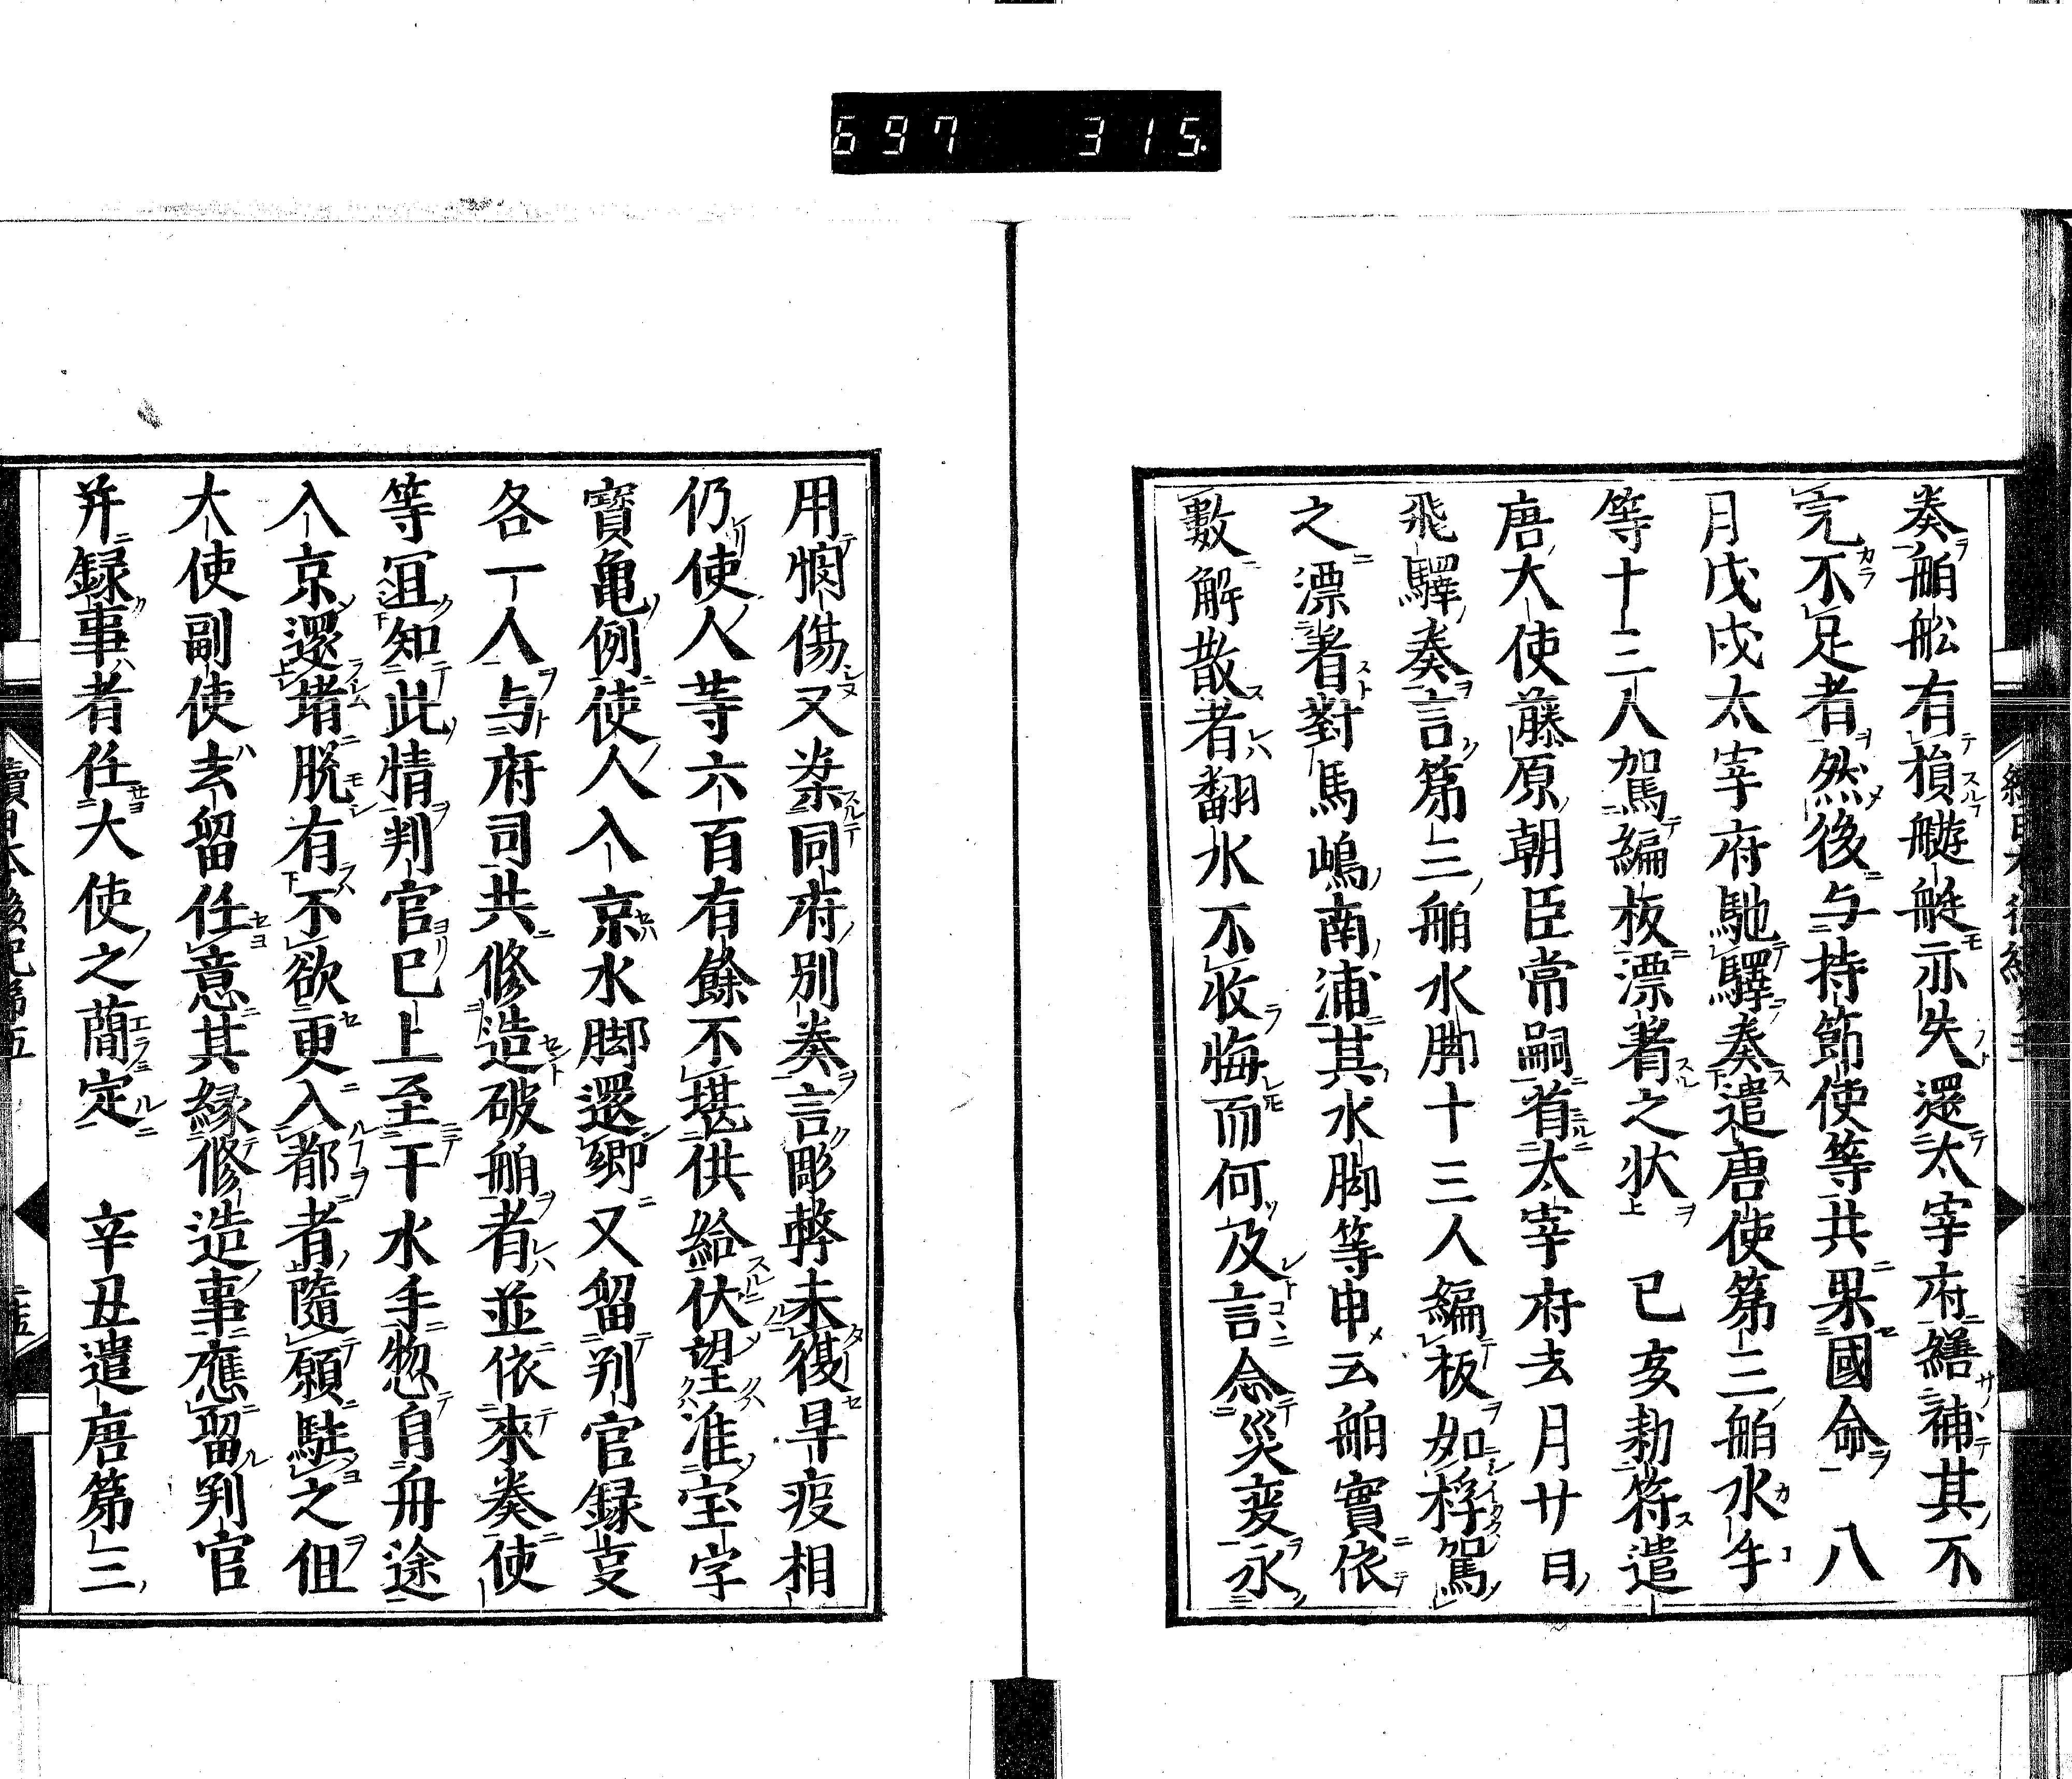 697 315.
奏舶舩有損艥艇亦失還太宰府繕補其不
完不足者然後与持節使等共果國命 八
月戊戌太宰府馳驛奏遣唐使第三舶水手
等十三人駕編板漂著之状 已亥勅符遣
唐大使藤原朝臣常嗣省太宰府去月廿日
飛驛奏言第三舶水脚十三人編板如桴駕
之漂着對馬嶋南浦其水脚等申云舶實依
數解散者翻水不收悔而何及言念災変永
用惻傷又桒同府別奏言彫弊未復旱疫相
仍使人等六百有餘不堪供給伏望准宝字
寳亀例使人入京水脚還郷又留判官録事
各一人与府司共修造破舶者並依來奏使
等冝知此情判官已上至干水手惣自舟途
入京還堵脱有不欲更入都者隨願駐之但
大使副使去留任意其縁修造事應留判官
并録事者任大使之蕳定 辛丑遣唐第三
續日本後紀第五